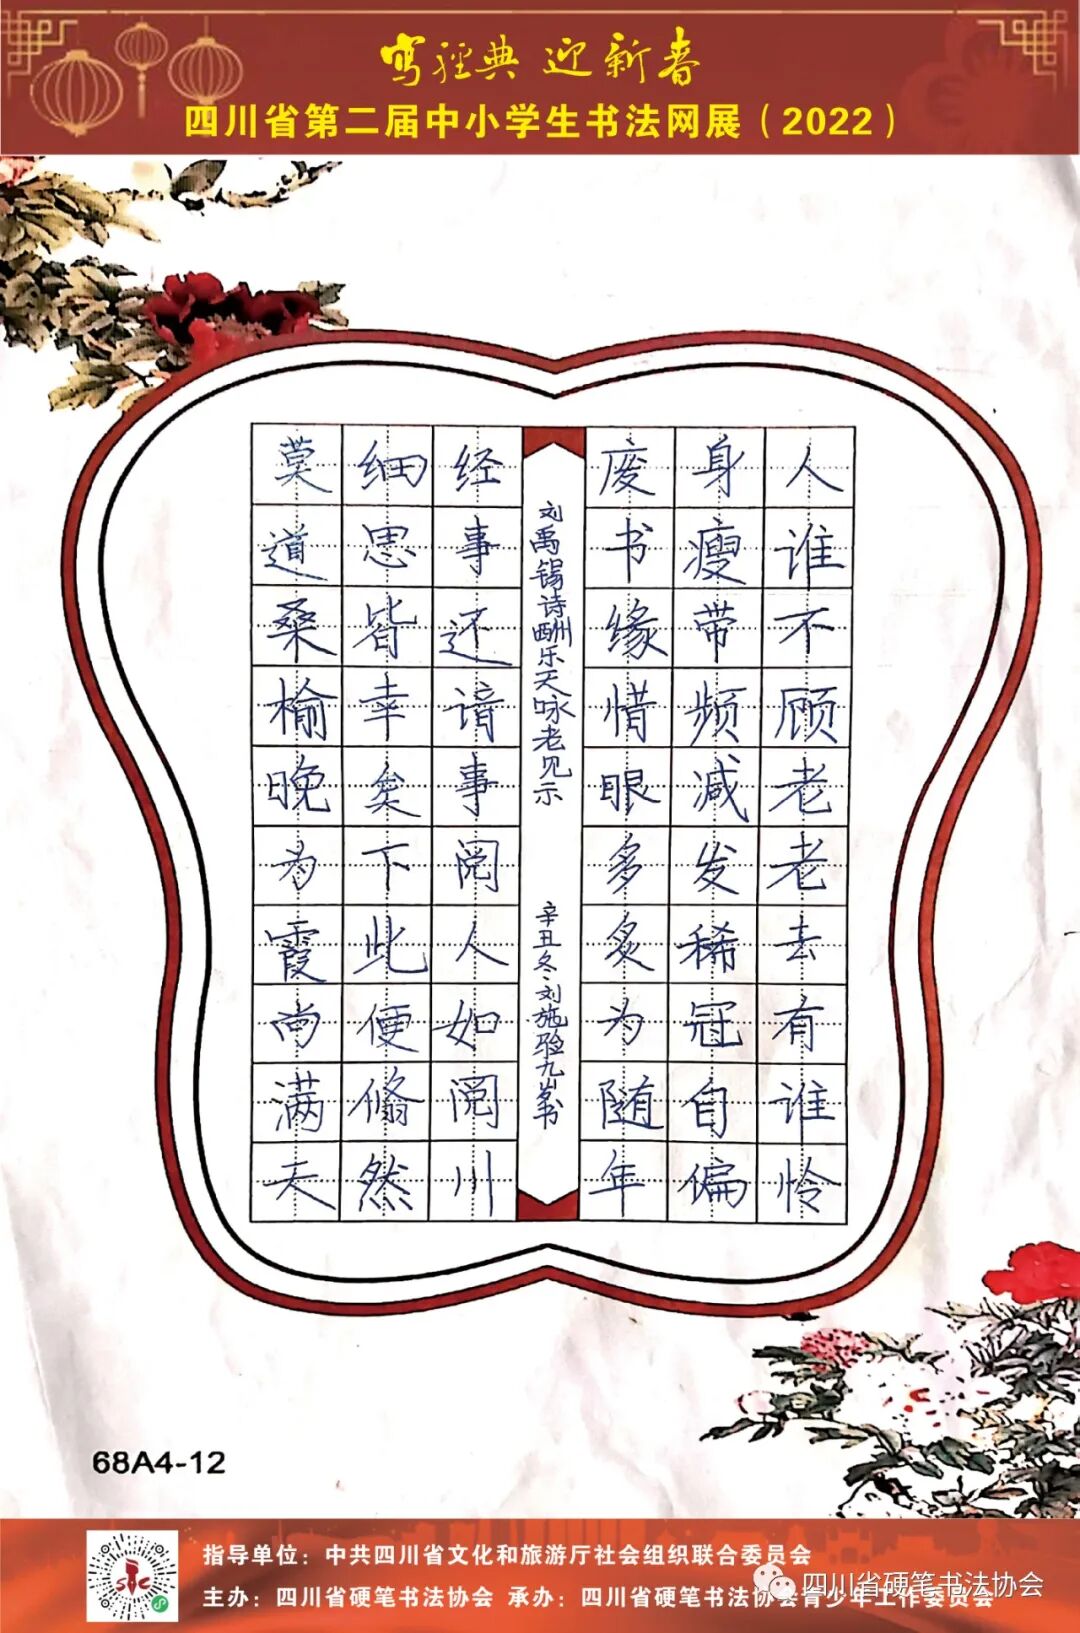 写经典 迎新春
四川省第二届中小学生书法网展（2022）
人谁不顾老老去有谁怜
身瘦带频减发稀冠自偏
废书缘惜眼多炙为随年
刘禹锡诗酬乐天咏老见示
辛丑冬·刘施验九岁书
经事还谙事阅人如阅川
细思皆幸矣下此便翛然
莫道桑榆晚为霞尚满天
68A4-12
指导单位：中共四川省文化和旅游厅社会组织联合委员会
主办：四川省硬笔书法协会 承办：四川省硬笔书法协会青少年工作委员会
四川省硬笔书法协会